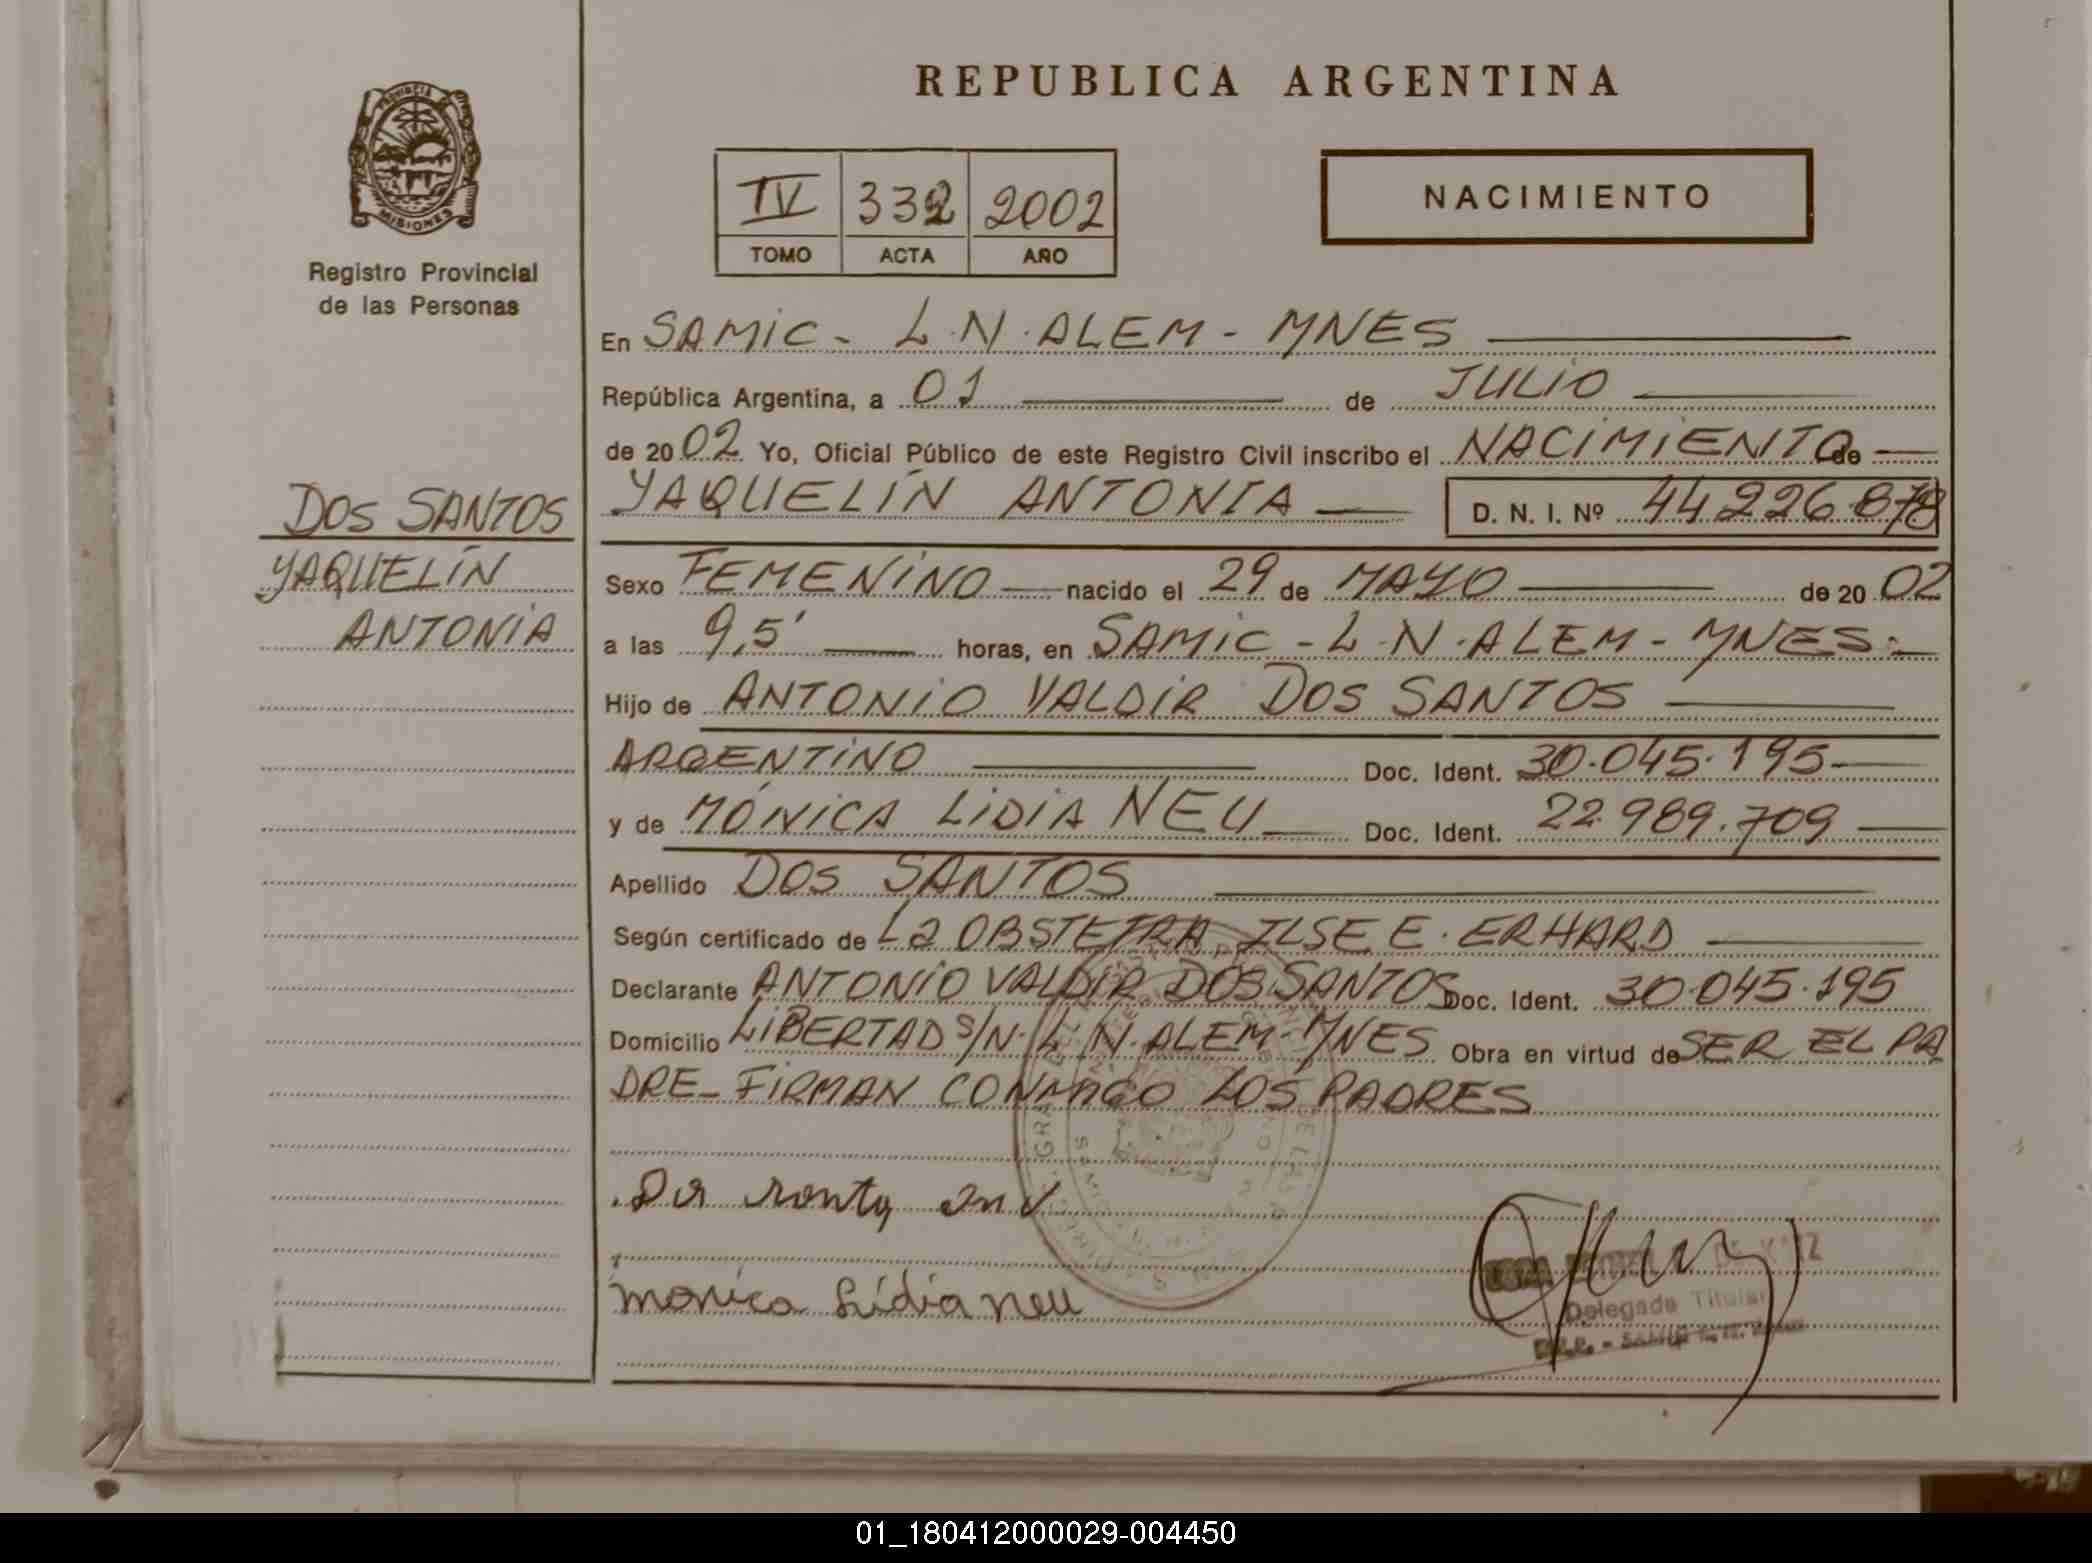 REPUBLICA ARGENTINA
PROVINCIA
MISIONES
Registro Provincial
de las Personas
IV 332 2002
TOMO ACTA AÑO
NACIMIENTO
En SAMIC - L.N.ALEM - MNES
República Argentina, a 01 de JULIO
de 2002 Yo, Oficial Público de este Registro Civil inscribo el NACIMIENTO de
YAQUELÍN ANTONIA D. N. I. Nº 44.226.878
DOS SANTOS
YAQUELÍN
ANTONIA
Sexo FEMENINO nacido el 29 de MAYO de 2002
a las 9,5' horas, en SAMIC - L.N.ALEM - MNES.
Hijo de ANTONIO VALDIR DOS SANTOS
ARGENTINO Doc. Ident. 30.045.195
y de MÓNICA LIDIA NEU Doc. Ident. 22.989.709
Apellido DOS SANTOS
Según certificado de La OBSTETRA ILSE E. ERHARD
Declarante ANTONIO VALDIR DOS SANTOS Doc. Ident. 30.045.195
Domicilio LIBERTAD S/N. L.N.ALEM-MNES Obra en virtud de SER EL PA
DRE- FIRMAN CONMIGO LOS PADRES
monica Lidia neu
Delegada Titular
01_180412000029-004450